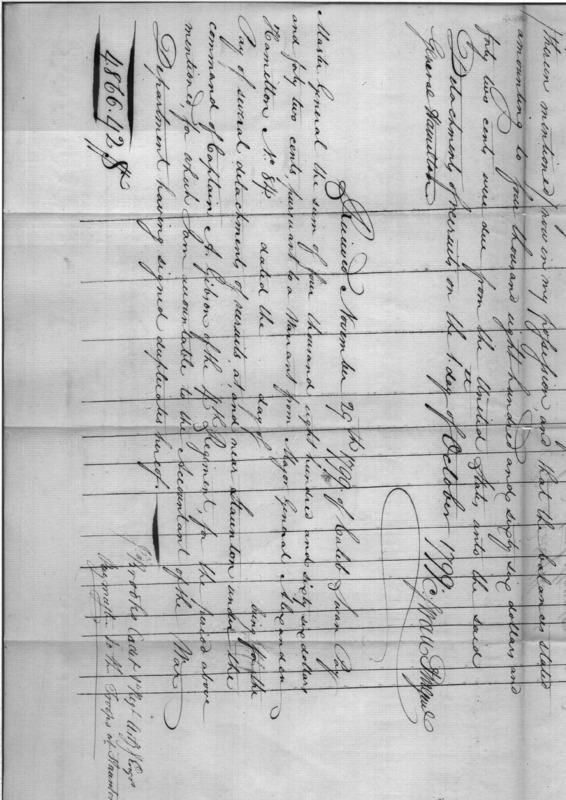 therein mentioned, now in my possession, and that the balances stated
amounting to four thousand eight hundred and sixty six dollars and
forty two cents were due from the United States unto the said
Detachments of recruits on the 1st day of October 1799.
General Hamilton
Received November 26th 1799 of Caleb Swan Pay
Master General the sum of four thousand eight hundred and sixty six dollars
and forty two cents, pursuant to a Warrant from Major General Alexander
Hamilton No. 84 dated the day of being for the
Pay of several detachments of recruits at and near Staunton under the
command of Captain A. Gibson of the Regiment, for the period above
mentioned, for which I am accountable to the Accountant of the War
Department, having signed duplicates hereof.
4866.42
Cadet
Paymaster to the Troops at Staunton